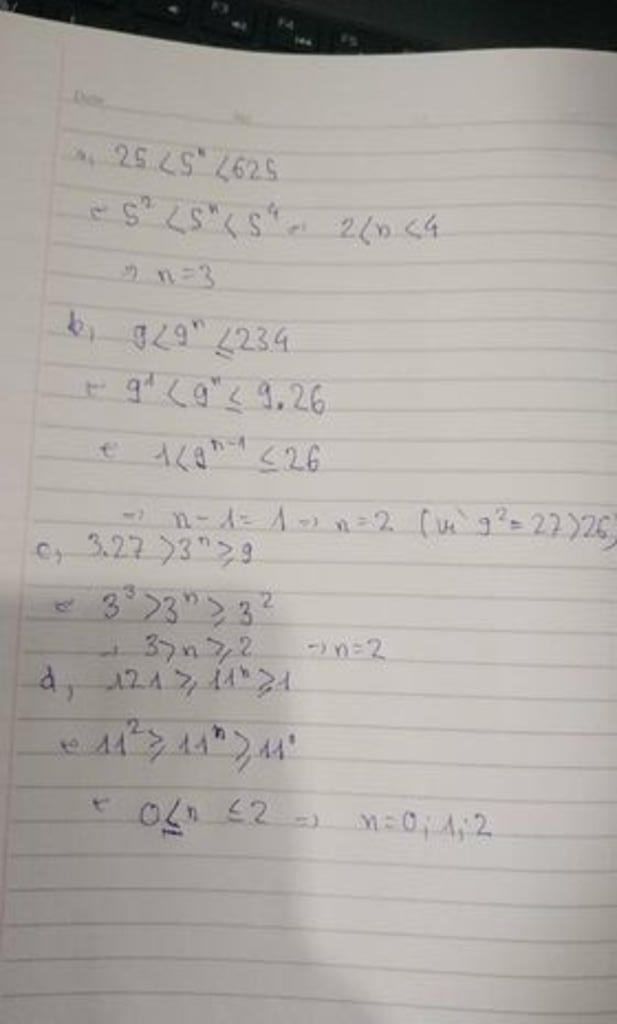 a, 25 < 5ⁿ < 625
⇔ 5² < 5ⁿ < 5⁴ ⇒ 2 < n < 4
⇒ n = 3
b, 9 < 9ⁿ ≤ 234
⇔ 9¹ < 9ⁿ ≤ 9.26
⇔ 1 < 9ⁿ⁻¹ ≤ 26
⇒ n - 1 = 1 ⇒ n = 2 (vì 9² = 27 > 26)
c, 3.27 > 3ⁿ ≥ 9
⇔ 3³ > 3ⁿ ≥ 3²
⇒ 3 > n ≥ 2 ⇒ n = 2
d, 121 ≥ 11ⁿ ≥ 1
⇔ 11² ≥ 11ⁿ ≥ 11⁰
⇔ 0 ≤ n ≤ 2 ⇒ n = 0; 1; 2